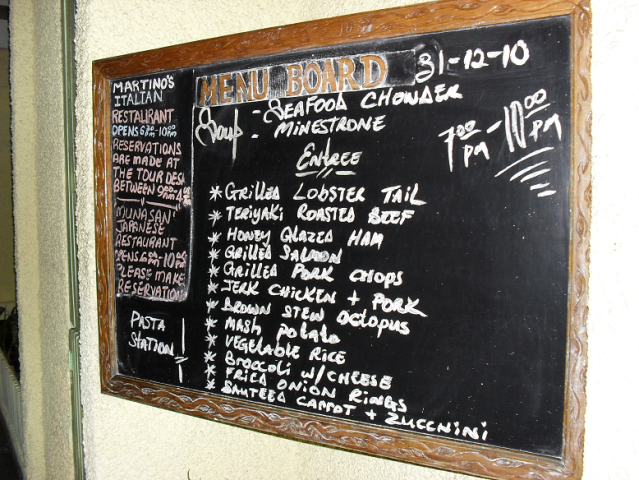 MARTINO'S
ITALIAN
RESTAURANT
OPENS 6:00PM-10:00
RESERVATIONS
ARE MADE AT
THE TOUR DESK
BETWEEN
MUNASAN
JAPANESE
RESTAURANT
OPENS 6:00PM-10:00
PLEASE MAKE
RESERVATION
PASTA
STATION
MENU BOARD
31-12-10
Soup - SEAFOOD CHOWDER
MINESTRONE
7:00 PM - 10:00 PM
ENTREE
* GRILLED LOBSTER TAIL
* TERIYAKI ROASTED BEEF
* HONEY GLAZED HAM
* GRILLED SALMON
* GRILLED PORK CHOPS
* JERK CHICKEN + PORK
* BROWN STEW OCTOPUS
* MASH POTATO
* VEGETABLE RICE
* BROCCOLI W/CHEESE
* FRIED ONION RINGS
* SAUTEED CARROT + ZUCCHINI